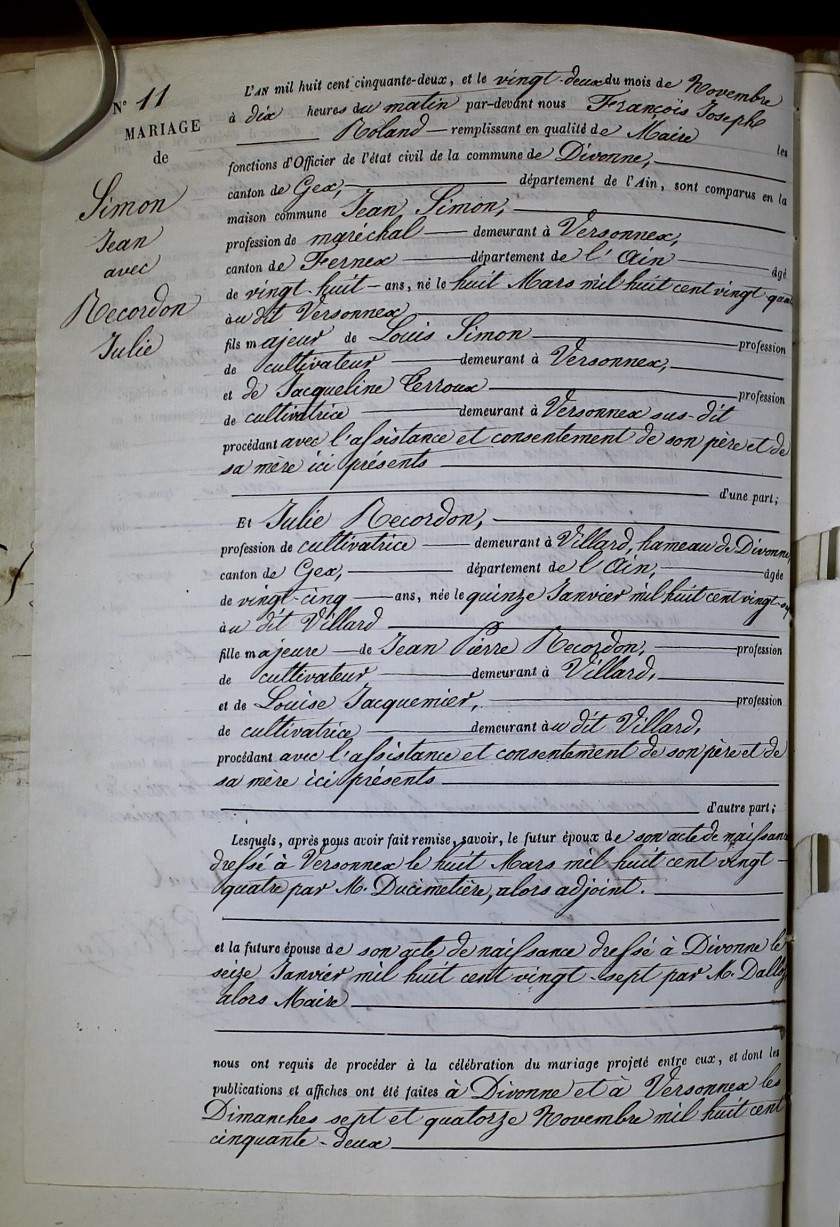 N° 11
MARIAGE
de
Simon
Jean
avec
Recordon
Julie
L'AN mil huit cent cinquante-deux, et le vingt-deux du mois de Novembre
à dix heures du matin par-devant nous François Joseph
Roland remplissant en qualité de Maire les
fonctions d'Officier de l'état civil de la commune de Divonne,
canton de Gex, département de l'Ain, sont comparus en la
maison commune Jean Simon,
profession de maréchal demeurant à Versonnex,
canton de Fernex département de l'Ain âgé
de vingt-huit ans, né le huit Mars mil huit cent vingt qua
àu dit Versonnex
fils majeur de Louis Simon profession
de cultivateur demeurant à Versonnex,
et de Jacqueline Terroux profession
de cultivatrice demeurant à Versonnex sus-dit
procédant avec l'assistance et consentement de son père et de
sa mère ici présents
d'une part;
Et Julie Recordon,
profession de cultivatrice demeurant à Villard, hameau de Divonne,
canton de Gex, département de l'Ain, âgée
de vingt-cinq ans, née le quinze Janvier mil huit cent vingt-
àu dit Villard
fille majeure de Jean Pierre Recordon, profession
de cultivateur demeurant à Villard,
et de Louise Jacquemier, profession
de cultivatrice demeurant àu dit Villard,
procédant avec l'assistance et consentement de son père et de
sa mère ici présents
d'autre part;
Lesquels, après nous avoir fait remise, savoir, le futur époux de son acte de naissan
dressé à Versonnex le huit Mars mil huit cent vingt-
quatre par M. Ducimetière, alors adjoint.
et la future épouse de son acte de naissance dressé à Divonne le
seize Janvier mil huit cent vingt-sept par M. Dalloz
alors Maire
nous ont requis de procéder à la célébration du mariage projeté entre eux, et dont les
publications et affiches ont été faites à Divonne et à Versonnex les
Dimanches sept et quatorze Novembre mil huit cent
cinquante-deux